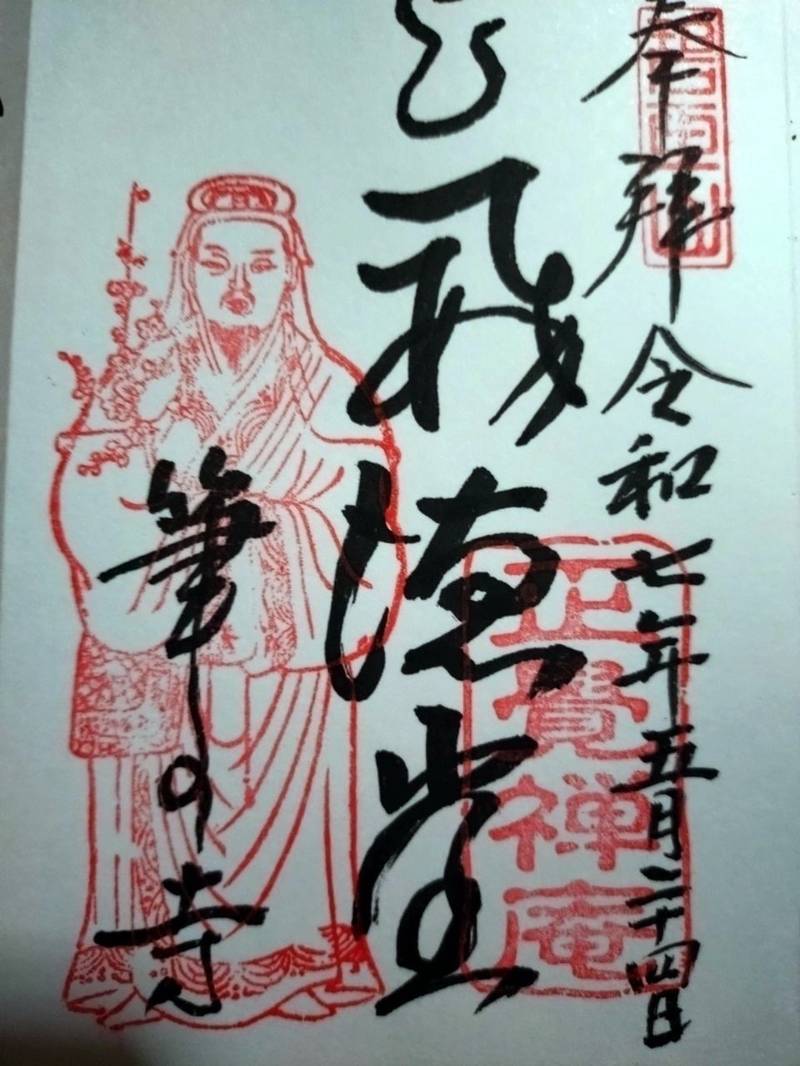 奉拝 令和七年五月二十四日
徳堂
筆の寺
正覺禅庵